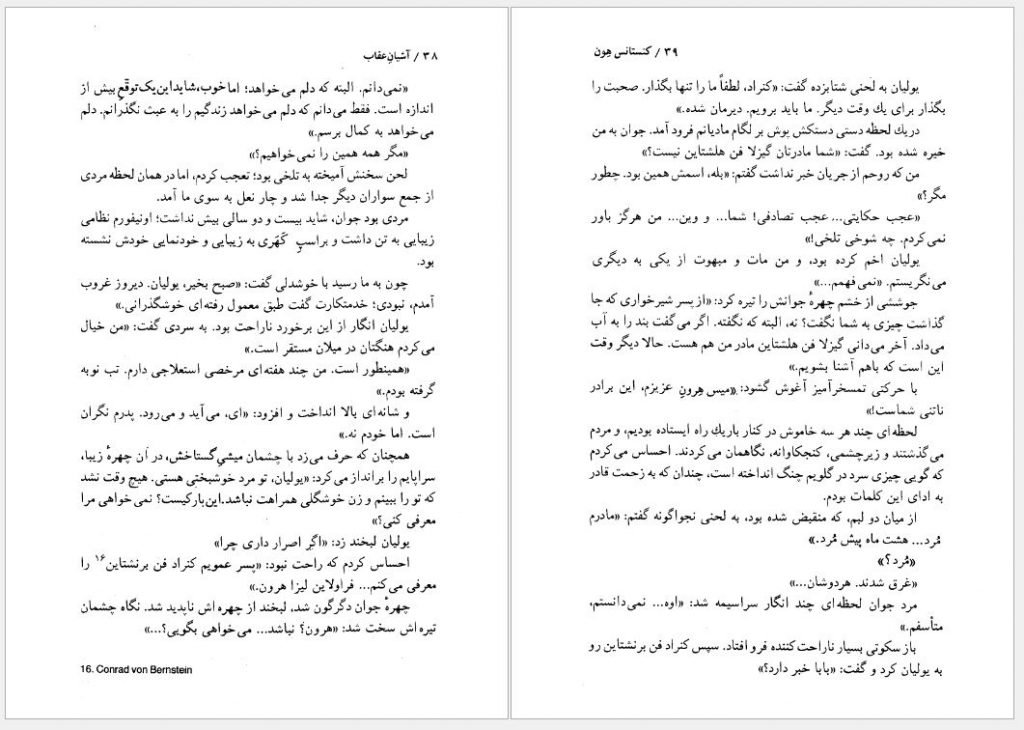 ۳۸ / آشیانِ عقاب
«نمی‌دانم. البته که دلم می‌خواهد؛ اما خوب، شاید این یک توقّعِ بیش از
اندازه است. فقط می‌دانم که دلم می‌خواهد زندگیم را به عبث نگذرانم. دلم
می‌خواهد به کمال برسم.»
«مگر همه همین را نمی‌خواهیم؟»
لحن سخنش آمیخته به تلخی بود؛ تعجب کردم، اما در همان لحظه مردی
از جمع سواران دیگر جدا شد و چار نعل به سوی ما آمد.
مردی بود جوان، شاید بیست و دو سالی بیش نداشت؛ اونیفورم نظامی
زیبایی به تن داشت و براسبِ کَهَری به زیبایی و خودنمایی خودش نشسته
بود.
چون به ما رسید با خوشدلی گفت: «صبح بخیر، یولیان. دیروز غروب
آمدم، نبودی؛ خدمتکارت گفت طبق معمول رفته‌ای خوشگذرانی.»
یولیان انگار از این برخورد ناراحت بود. به سردی گفت: «من خیال
می‌کردم هنگتان در میلان مستقر است.»
«همینطور است. من چند هفته‌ای مرخصی استعلاجی دارم. تب نوبه
گرفته بودم.»
و شانه‌ای بالا انداخت و افزود: «ای، می‌آید و می‌رود. پدرم نگران
است. اما خودم نه.»
همچنان که حرف می‌زد با چشمان میشیِ گستاخش، در آن چهرهٔ زیبا،
سراپایم را برانداز می‌کرد: «یولیان، تو مرد خوشبختی هستی. هیچ وقت نشد
که تو را ببینم و زن خوشگلی همراهت نباشد. این بار کیست؟ نمی‌خواهی مرا
معرفی کنی؟»
یولیان لبخند زد: «اگر اصرار داری چرا»
احساس کردم که راحت نبود: «پسر عمویم کنراد فن برنشتاین۱۶ را
معرفی می‌کنم... فراولاین لیزا هرون.»
چهرهٔ جوان دگرگون شد، لبخند از چهره‌اش ناپدید شد. نگاه چشمان
تیره‌اش سخت شد: «هرون؟ نباشد... می‌خواهی بگویی؟...»
16. Conrad von Bernstein
۳۹ / کنستانس هِون
یولیان به لحنی شتابزده گفت: «کنراد، لطفاً ما را تنها بگذار. صحبت را
بگذار برای یك وقت دیگر. ما باید برویم. دیرمان شده.»
دریك لحظه دستی دستکش پوش بر لگام مادیانم فرود آمد. جوان به من
خیره شده بود. گفت: «شما مادرتان گیزلا فن هلشتاین نیست؟»
من که روحم از جریان خبر نداشت گفتم: «بله، اسمش همین بود. چطور
مگر؟»
«عجب حکایتی... عجب تصادفی! شما... و وین... من هرگز باور
نمی‌کردم. چه شوخی تلخی!»
یولیان اخم کرده بود، و من مات و مبهوت از یکی به دیگری
می‌نگریستم. «نمی‌فهمم...»
جوششی از خشم چهرهٔ جوانش را تیره کرد: «از پسر شیرخواری که جا
گذاشت چیزی به شما نگفت؟ نه، البته که نگفته. اگر می‌گفت بند را به آب
می‌داد. آخر می‌دانی گیزلا فن هلشتاین مادر من هم هست. حالا دیگر وقت
این است که باهم آشنا بشویم.»
با حرکتی تمسخرآمیز آغوش گشود: «میس هِرونِ عزیزم، این برادر
ناتنی شماست!»
لحظه‌ای چند هر سه خاموش در کنار باریك راه ایستاده بودیم، و مردم
می‌گذشتند و زیرچشمی، کنجکاوانه، نگاهمان می‌کردند. احساس می‌کردم
که گویی چیزی سرد در گلویم چنگ انداخته است، چندان که به زحمت قادر
به ادای این کلمات بودم.
از میان دو لبم، که منقبض شده بود، به لحنی نجواگونه گفتم: «مادرم
مُرد... هشت ماه پیش مُرد.»
«مُرد؟»
«غرق شدند. هردوشان...»
مرد جوان لحظه‌ای چند انگار سراسیمه شد: «اوه... نمی‌دانستم،
متأسفم.»
باز سکوتی بسیار ناراحت‌کننده فرو افتاد. سپس کنراد فن برنشتاین رو
به یولیان کرد و گفت: «بابا خبر دارد؟»